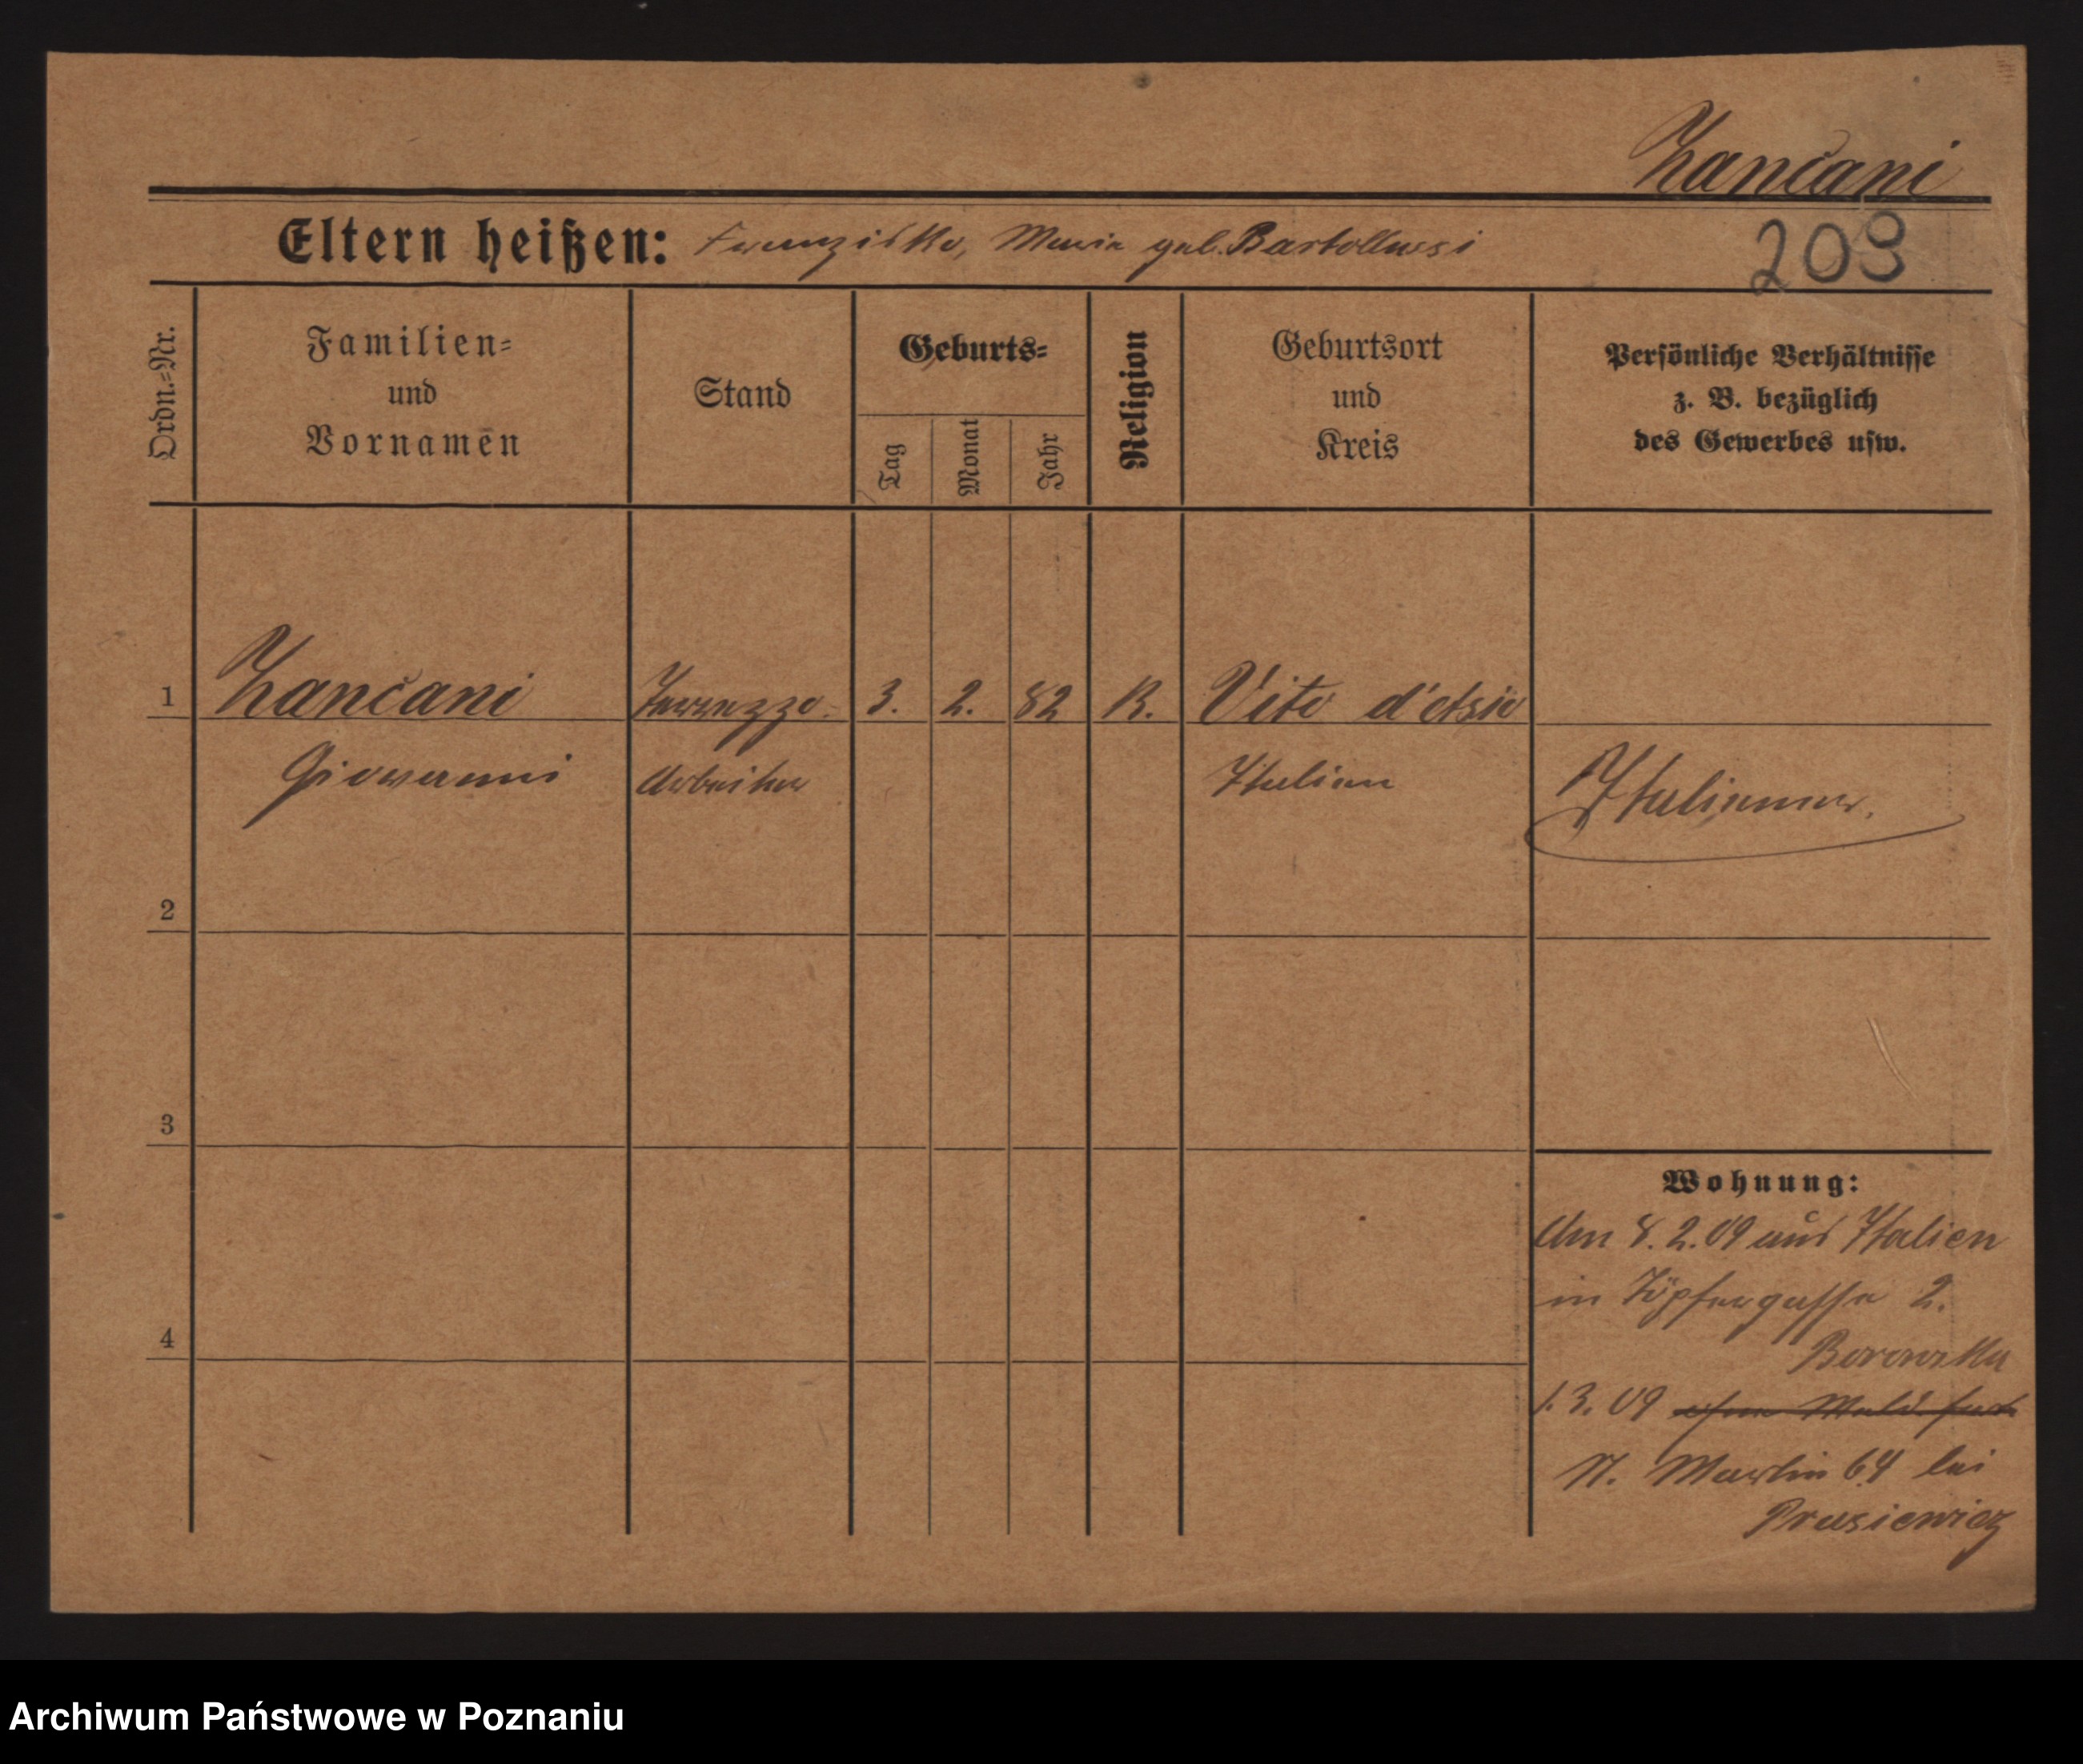 Zancani
Eltern heißen: Franzisko, Maria geb. Bartollussi
209
Ordn.=Nr.
Familien=
und
Vornamen
Stand
Geburts=
Tag
Monat
Jahr
Religion
Geburtsort
und
Kreis
Persönliche Verhältnisse
z. B. bezüglich
des Gewerbes usw.
1 Zancani Terrazzo- 3. 2. 82 K. Vito d'
Giovanni Arbeiter Italien Italiener.
2
3
4
Wohnung:
Am 8.2.09 aus Italien
in Töpfergasse 2.
1.3.09 ohne Meld. fort
St. Martin 64 bei
Prusiewicz
Archiwum Państwowe w Poznaniu